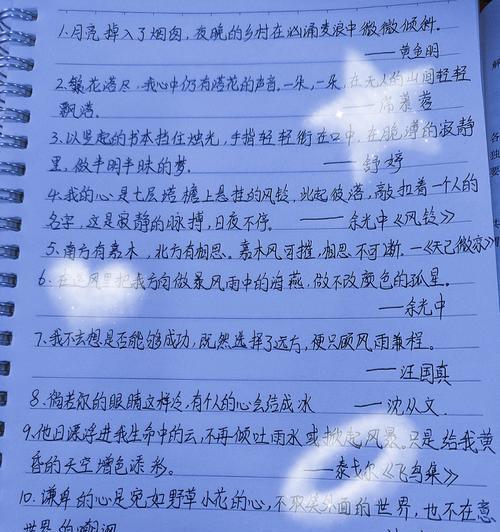 1.月亮掉入了烟囱，夜晚的乡村在汹涌麦浪中微微倾斜。
——黄鱼明
2.繁花落尽，我心中仍有落花的声音。一朵，一朵，在无人的山间轻轻
飘落。——席慕蓉
3.以竖起的书本挡住烛光，手指轻轻衔在口中，在脆薄的寂静
里，做半明半昧的梦。——舒婷
4.我的心是七层塔檐上悬挂的风铃，此起彼落，敲扣着一个人的
名字，这是寂静的脉搏，日夜不停。——余光中《风铃》
5.南方有嘉木，北方有相思。嘉木风可摧，相思不可断。—《天已微凉》
6.在 风里把我方向做暴风雨中的海燕，做不改颜色的孤星。
——余光中
7.我不去想是否能够成功，既然选择了远方，便只顾风雨兼程。
——汪国真
8.倘若你的眼睛这样冷，有个人的心会结成冰 ——沈从文.
9.他日漂浮进我生命中的云，不再倾吐雨水或掀起风暴。只是给我黄
昏的天空增色添彩。——泰戈尔《飞鸟集》
10.谦卑的心是宛如野草小花的心，不取笑外面的世界，也不在意
世界的嘲讽